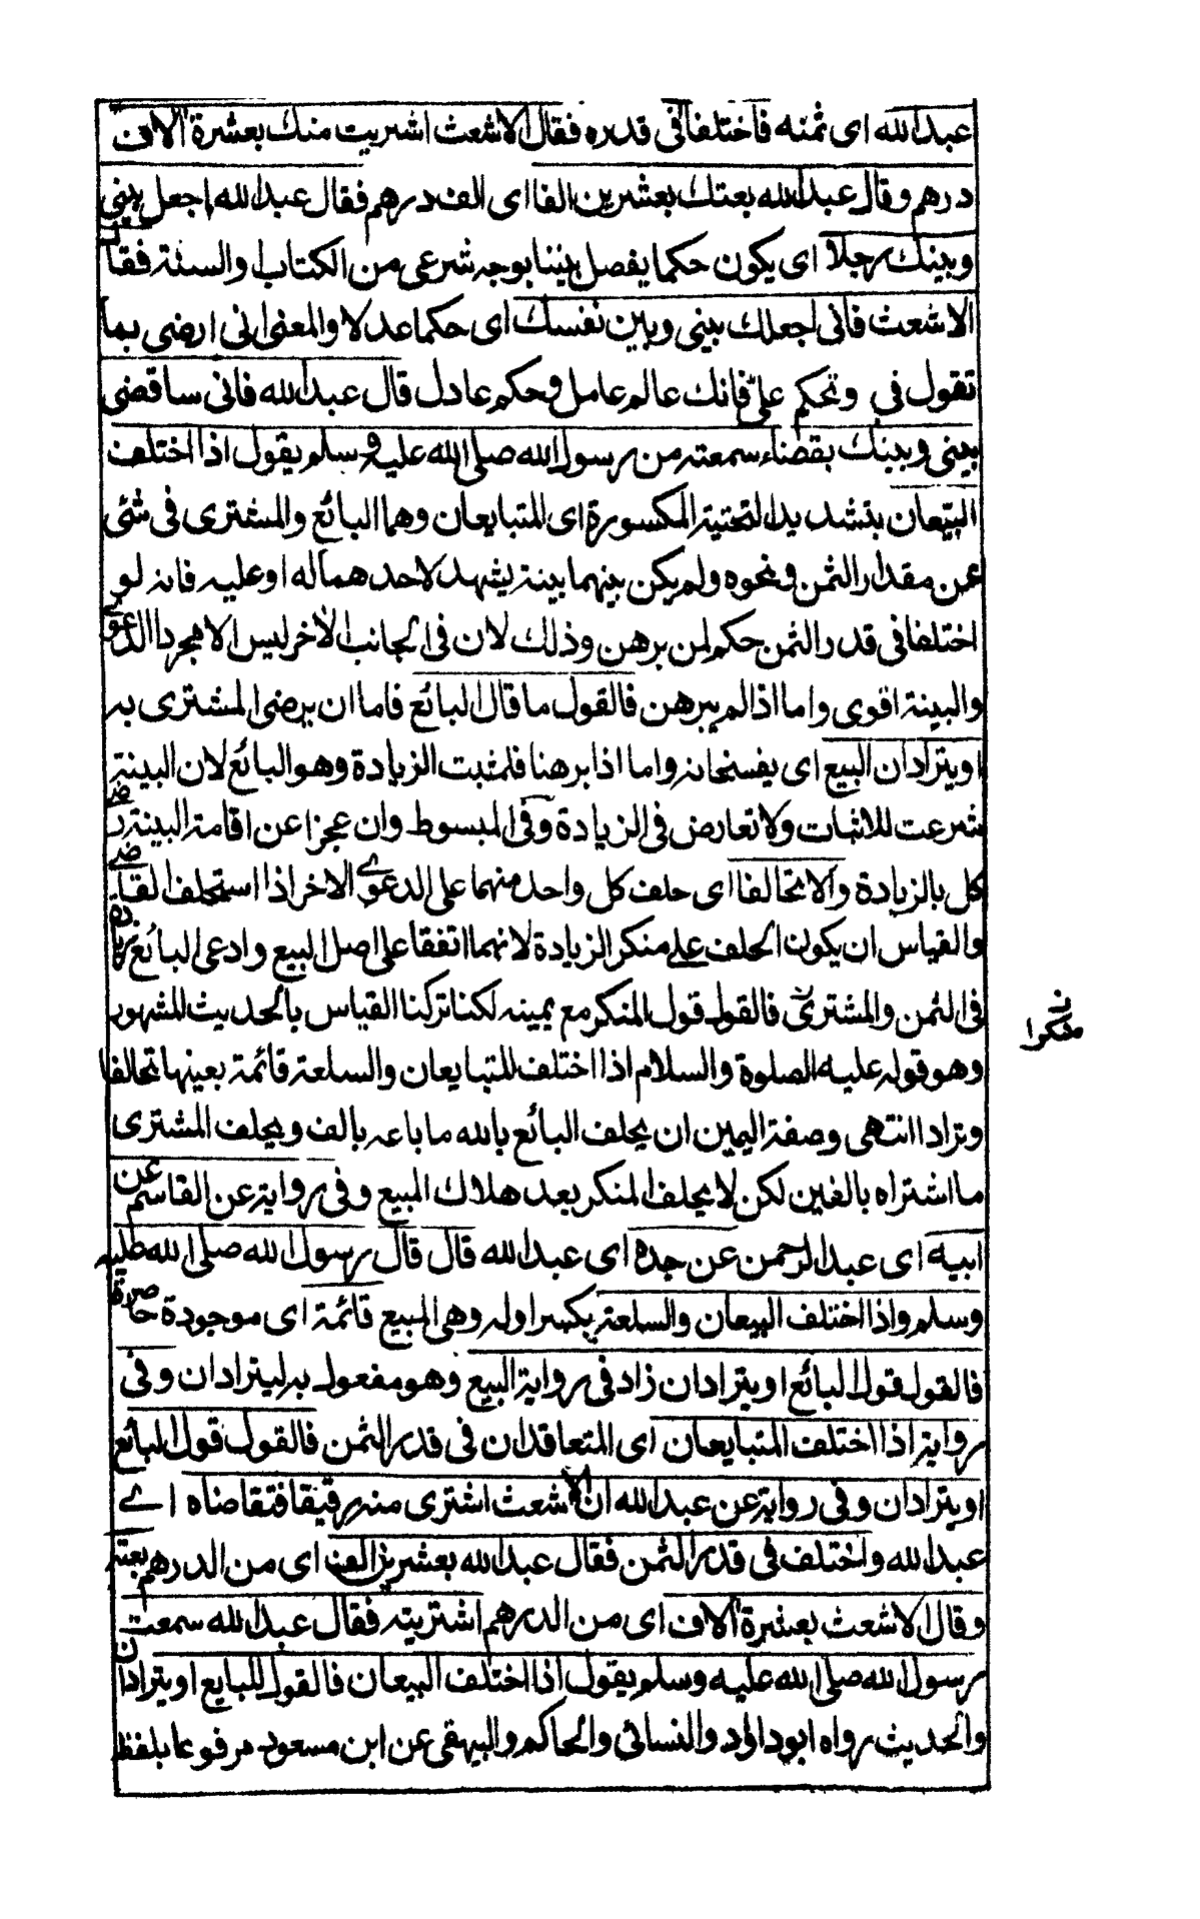 عبدالله اى ثمنه فاختلفا فى قدره فقال الاشعث اشتريت منك بعشرة الاف
درهم وقال عبدالله بعتك بعشرين الفا اى الف درهم فقال عبدالله اجعل بينى
وبينك رجلا اى يكون حكما يفصل بيننا بوجه شرعى من الكتاب والسنة فقال
الاشعث فانى اجعلك بينى وبين نفسك اى حكما عدلا والمعنى انى ارضى بما
تقول فى وتحكم علىّ فانك عالم عامل وحكم عادل قال عبدالله فانى ساقضى
بينى وبينك بقضاء سمعته من رسول الله صلى الله عليه وسلم يقول اذا اختلف
البيّعان بتشديد التحتية المكسورة اى المتبايعان وهما البائع والمشترى فى شئ
عن مقدار الثمن ونحوه ولم يكن بينهما بينة يشهد لاحدهما له او عليه فانه لو
اختلفا فى قدر الثمن حكم لمن برهن وذلك لان فى الجانب الاخر ليس الا مجرد الدعوى
والبينة اقوى واما اذا لم يبرهن فالقول ما قال البائع فاما ان يرضى المشترى به
او يترادان البيع اى يفسخانه واما اذا برهنا فلمثبت الزيادة وهو البائع لان البينة
شرعت للاثبات ولا تعارض فى الزيادة وفى المبسوط وان عجزا عن اقامة البينة رضى
كل بالزيادة والا تحالفا اى حلف كل واحد منهما على الدعوى الاخر اذا استحلف القاضى
والقياس ان يكون الحلف على منكر الزيادة لانهما اتفقا على اصل البيع وادعى البائع زيادة
فى الثمن والمشترى فالقول قول المنكر مع يمينه لكنا تركنا القياس بالحديث المشهور
نه منكرا
وهو قوله عليه الصلوة والسلام اذا اختلف المتبايعان والسلعة قائمة بعينها تحالفا
وترادا انتهى وصفة اليمين ان يحلف البائع بالله ما باعه بالف ويحلف المشترى
ما اشتراه بالفين لكن لا يحلف المنكر بعد هلاك المبيع وفى رواية عن القاسم عن
ابيه اى عبدالرحمن عن جده اى عبدالله قال قال رسول الله صلى الله عليه
وسلم واذا اختلف البيعان والسلعة بكسر اوله وهى المبيع قائمة اى موجودة حاضرة
فالقول قول البائع او يترادان زاد فى رواية البيع وهو مفعول به ليترادان وفى
رواية اذا اختلف المتبايعان اى المتعاقدان فى قدر الثمن فالقول قول البائع
او يترادان وفى رواية عن عبدالله ان الاشعث اشترى منه رقيقا فتقاضاه اے
عبدالله واختلف فى قدر الثمن فقال عبدالله بعشرين الف اى من الدرهم بعته
وقال الاشعث بعشرة الاف اى من الدرهم اشتريته فقال عبدالله سمعت
رسول الله صلى الله عليه وسلم يقول اذا اختلف البيعان فالقول للبايع او يترادان
والحديث رواه ابوداؤد والنسائى والحاكم والبيهقى عن ابن مسعود مرفوعا بلفظ